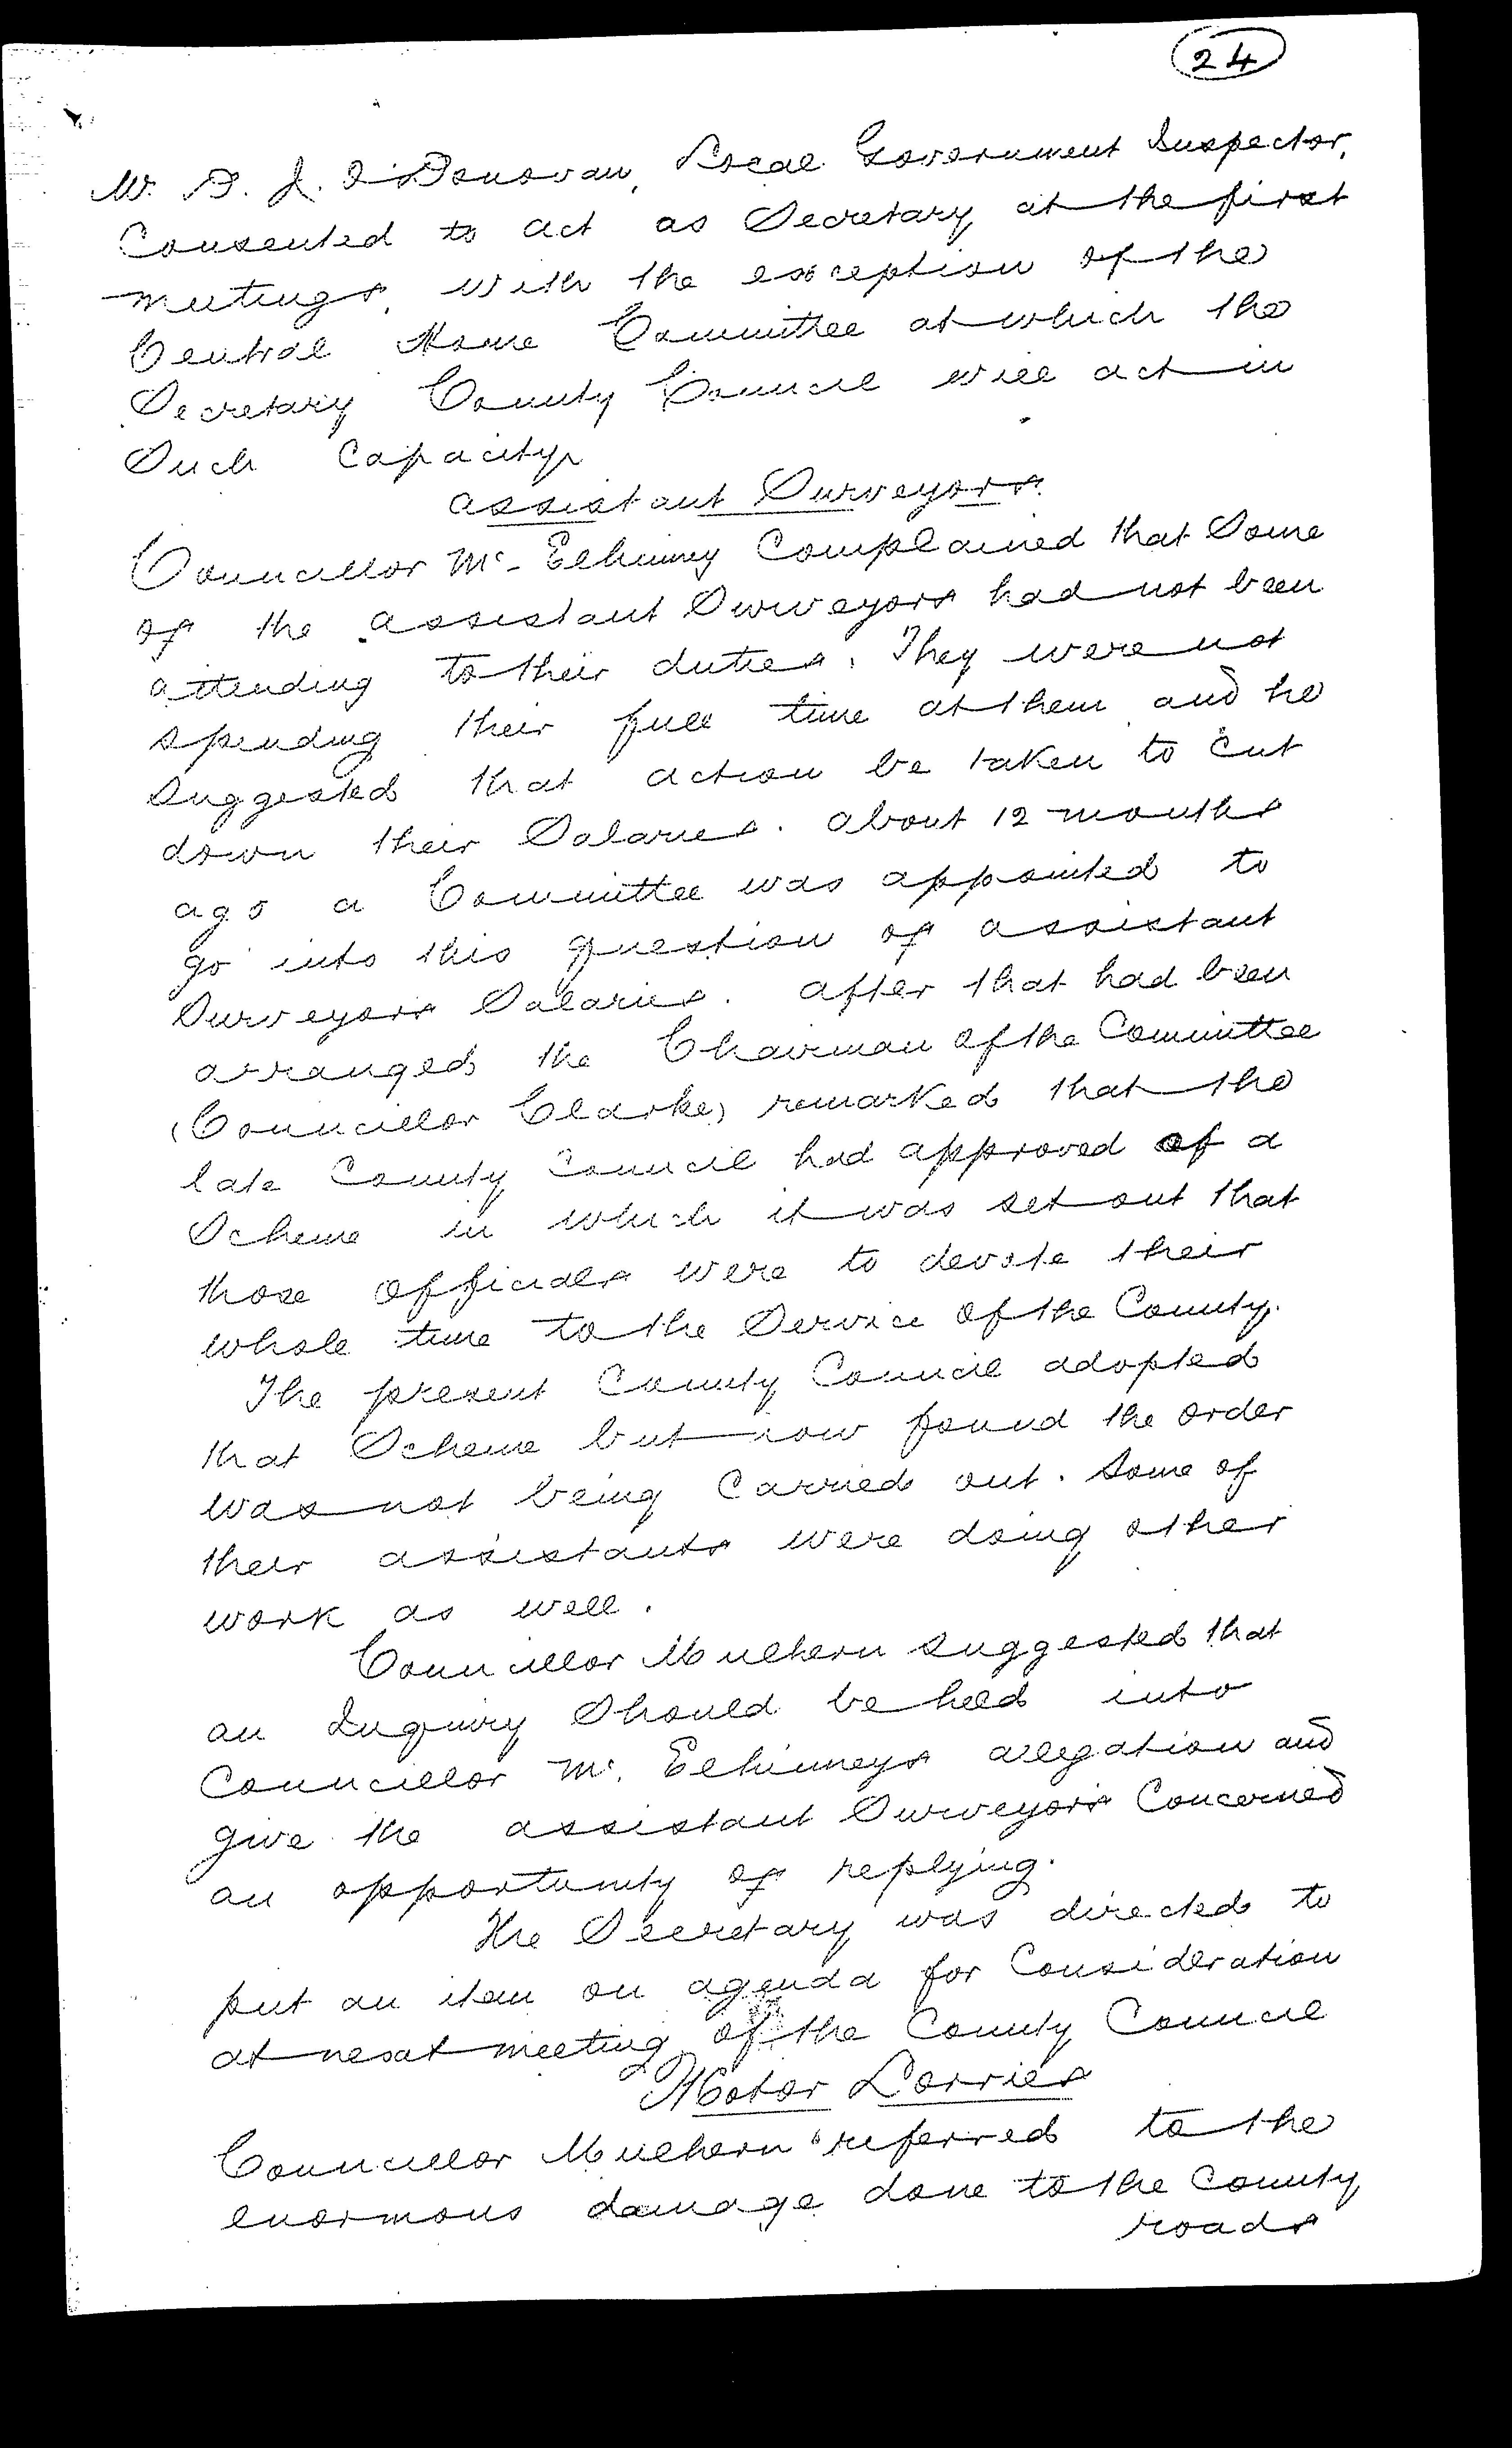 24
Mr. D. J. O'Donovan, Local Government Inspector,
Consented to act as Secretary at the first
meetings, with the exception of the
Central Home Committee at which the
Secretary County Council will act in
Such Capacity
Assistant Surveyors.
Councillor Mc. Elhinney Complained that Some
of the Assistant Surveyors had not been
attending to their duties. They were not
spending their full time at them and he
Suggested that action be taken to Cut
down their Salaries. About 12 months
ago a Committee was appointed to
go into this question of Assistant
Surveyors Salaries. After that had been
arranged the Chairman of the Committee
(Councillor Clarke) remarked that the
late County Council had approved of a
Scheme in which it was set out that
those Officials were to devote their
whole time to the Service of the County.
The present County Council adopted
that Scheme but now found the order
was not being Carried out. Some of
their assistants were doing other
work as well.
Councillor Mulhern suggested that
an Inquiry Should be held into
Councillor Mc. Elhinneys allegation and
give the assistant Surveyors Concerned
an opportunity of replying.
The Secretary was directed to
put an item on agenda for Consideration
at next meeting of the County Council
Motor Lorries
Councillor Mulhern referred to the
enormous damage done to the County
roads